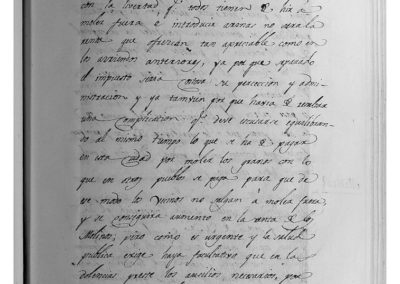 con la libertad q.e todos tienen de hir a
moler fuera e introducir arinas no sera la
renta que ofrezcan tan apreciable como en
los arriendos anteriores, ya por que apurado
el impuesto seria contra su percepcion y admi-
nistracion y ya tamvien por que havia de resultar
una complicacion q.e deve evitarse equilibran-
do al mismo tiempo lo que se ha de pagar
en esta Ciudad por moler los granos con lo
que en otros pueblos se paga para que de
ese modo los vecinos no salgan à moler fuera,
y se conseguira aumento en la renta de los
Molinos; pero como es urgente y la salud
publica exige haya facultativo que en las
dolencias preste los auxilios necesarios, por